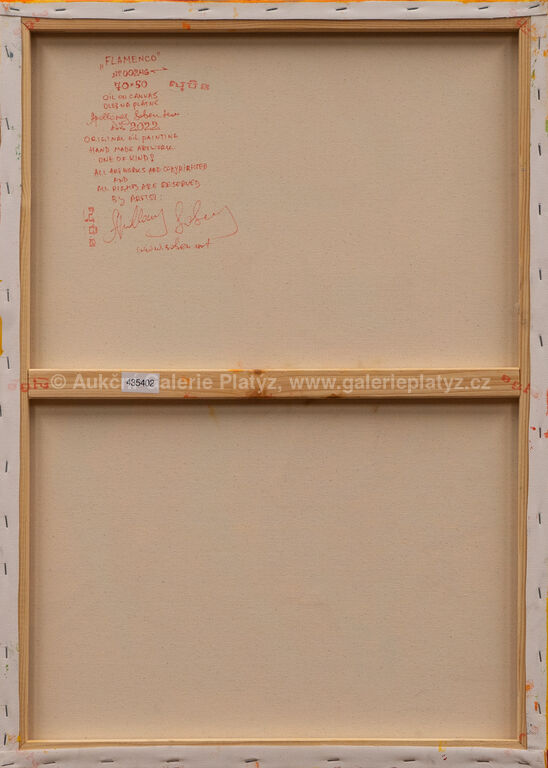 „FLAMENCO"
70×50
OIL ON CANVAS
OLEJ NA PLÁTNĚ
2022
ORIGINAL OIL PAINTING
HAND MADE ARTWORK
ONE OF KIND!
ALL ARTWORKS AND COPYRIGHTED
AND
ALL RIGHTS ARE RESERVED
By ARTIST:
© Aukční Galerie Platyz, www.galerieplatyz.cz
435402